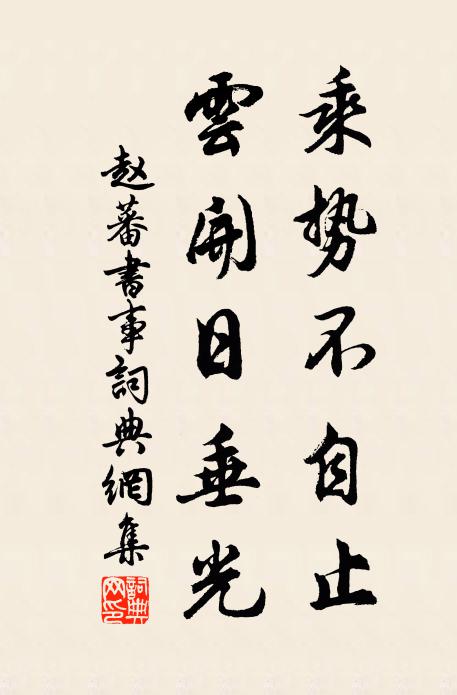 乘势不自止
雲開日垂光
赵蕃書事詞典網集
詞典网印